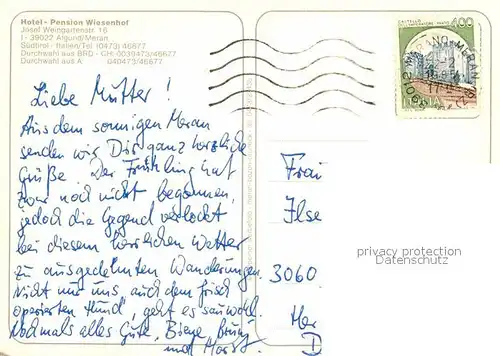 Hotel - Pension Wiesenhof
Josef Weingartenstr. 16
I - 39022 Algund/Meran
Südtirol - Italien/Tel (0473) 46677
Durchwahl aus BRD - GH:0039473/46677
Durchwahl aus A: 040473/46677
Liebe Mutter!
Aus dem sonnigen Meran
senden wir Dir ganz herzliche
Grüße. Der Frühling hat
zwar noch nicht begonnen,
jedoch die Gegend verlockt
bei diesem herrlichen Wetter
zu ausgedehnten Wanderungen.
Nicht nur uns, auch dem frisch
operierten Hund, geht es sauwohl.
Nochmals alles Gute,
und Horst.
400
MERANO MERAN
ITALIA
Frau
Ilse
3060
D
privacy protection
Datenschutz